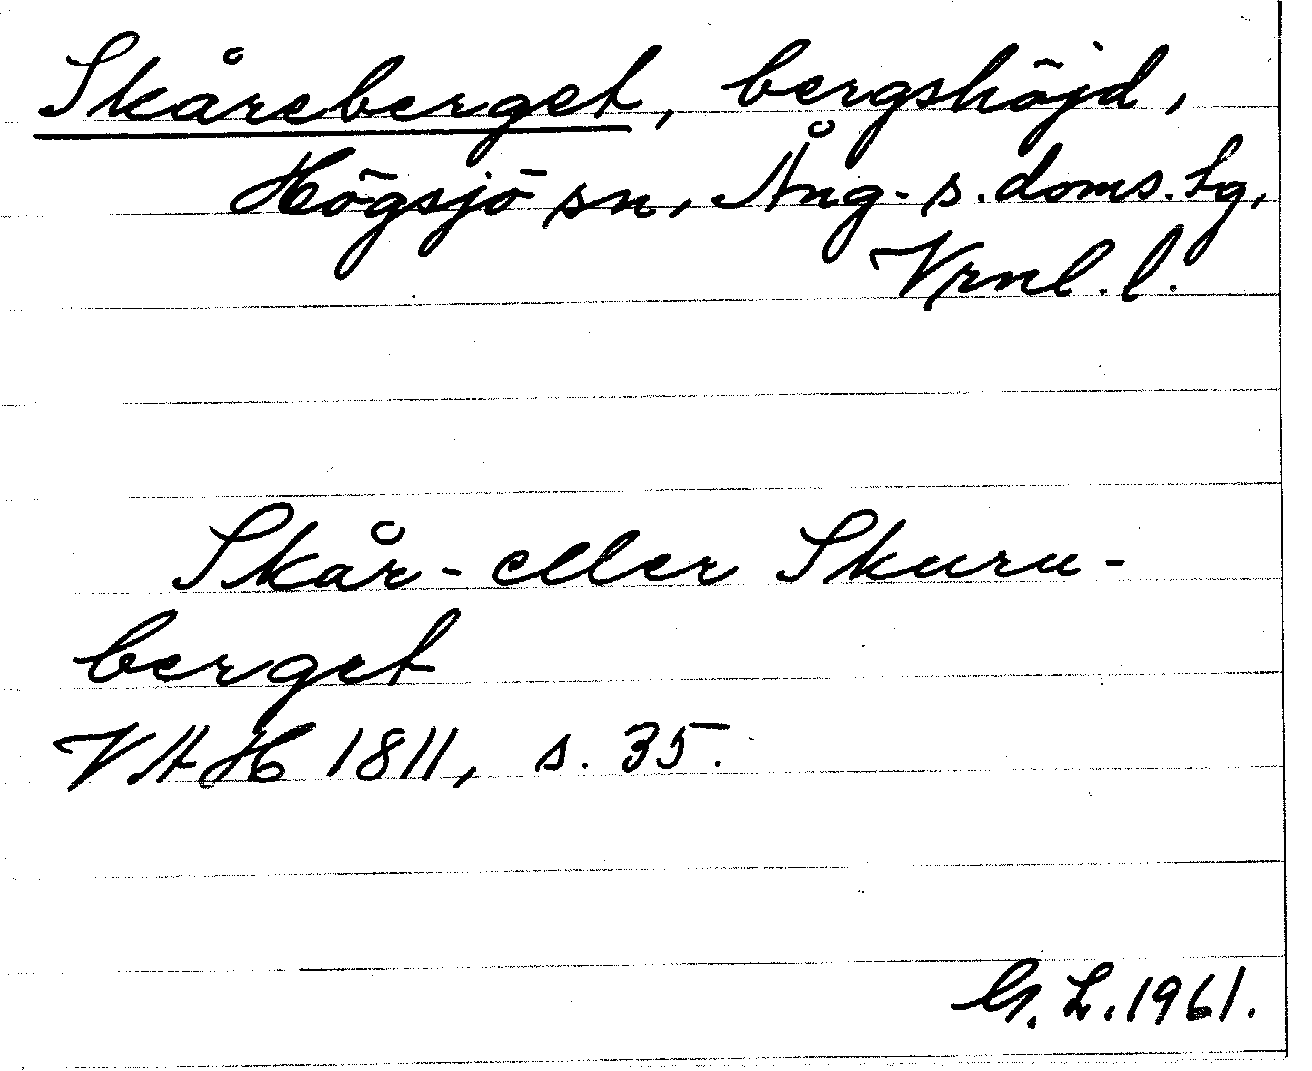 Skåreberget, bergshöjd,
Högsjö sn, Ång. s. doms. sg,
Vrnl. l.
Skår- eller Skuru-
berget
VAH 1811, s. 35.
G. L. 1961.